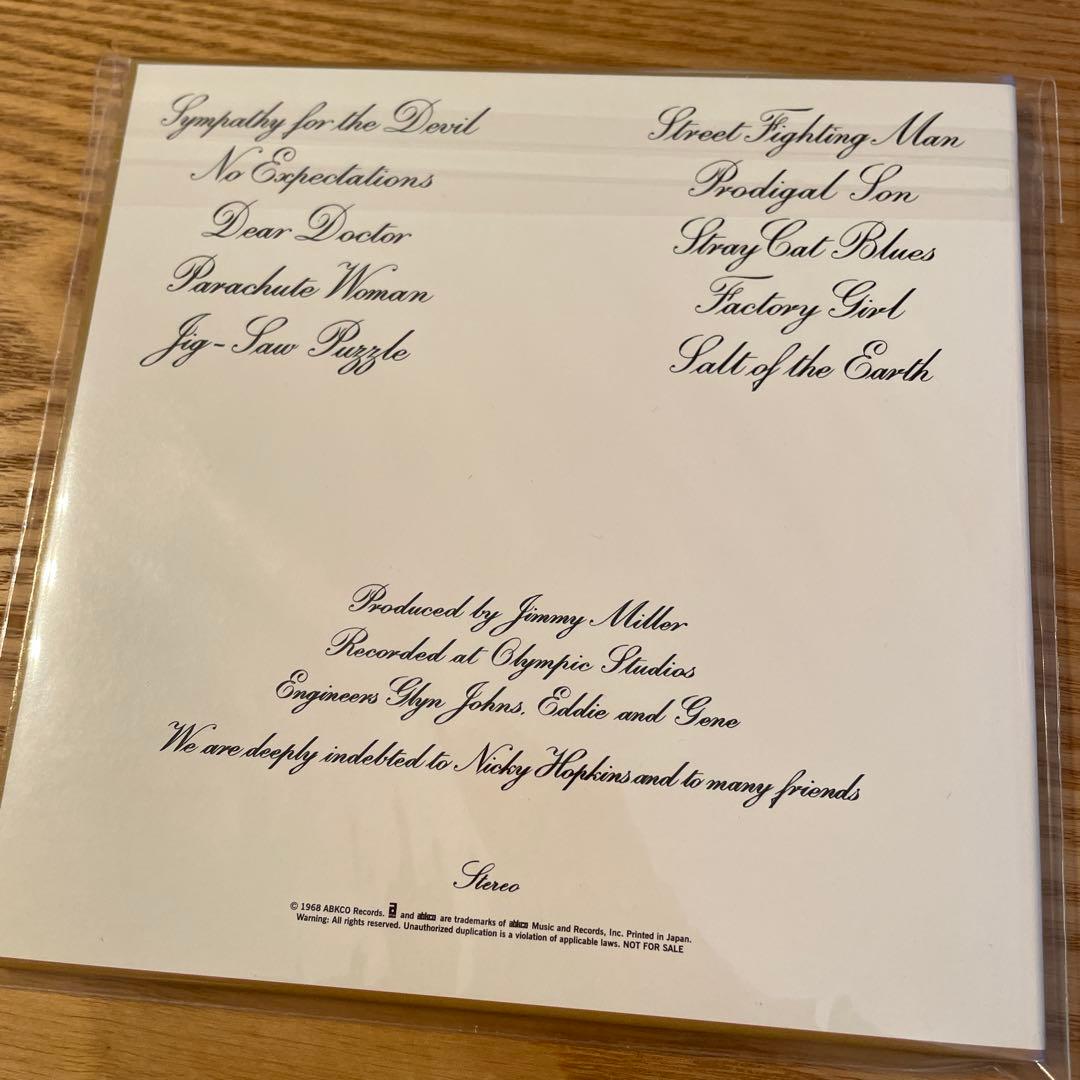 Sympathy for the Devil
No Expectations
Dear Doctor
Parachute Woman
Jig-Saw Puzzle
Street Fighting Man
Prodigal Son
Stray Cat Blues
Factory Girl
Salt of the Earth
Produced by Jimmy Miller
Recorded at Olympic Studios
Engineers Glyn Johns, Eddie and Gene
We are deeply indebted to Nicky Hopkins and to many friends
Stereo
© 1968 ABKCO Records. and abkco are trademarks of abkco Music and Records, Inc. Printed in Japan.
Warning: All rights reserved. Unauthorized duplication is a violation of applicable laws. NOT FOR SALE